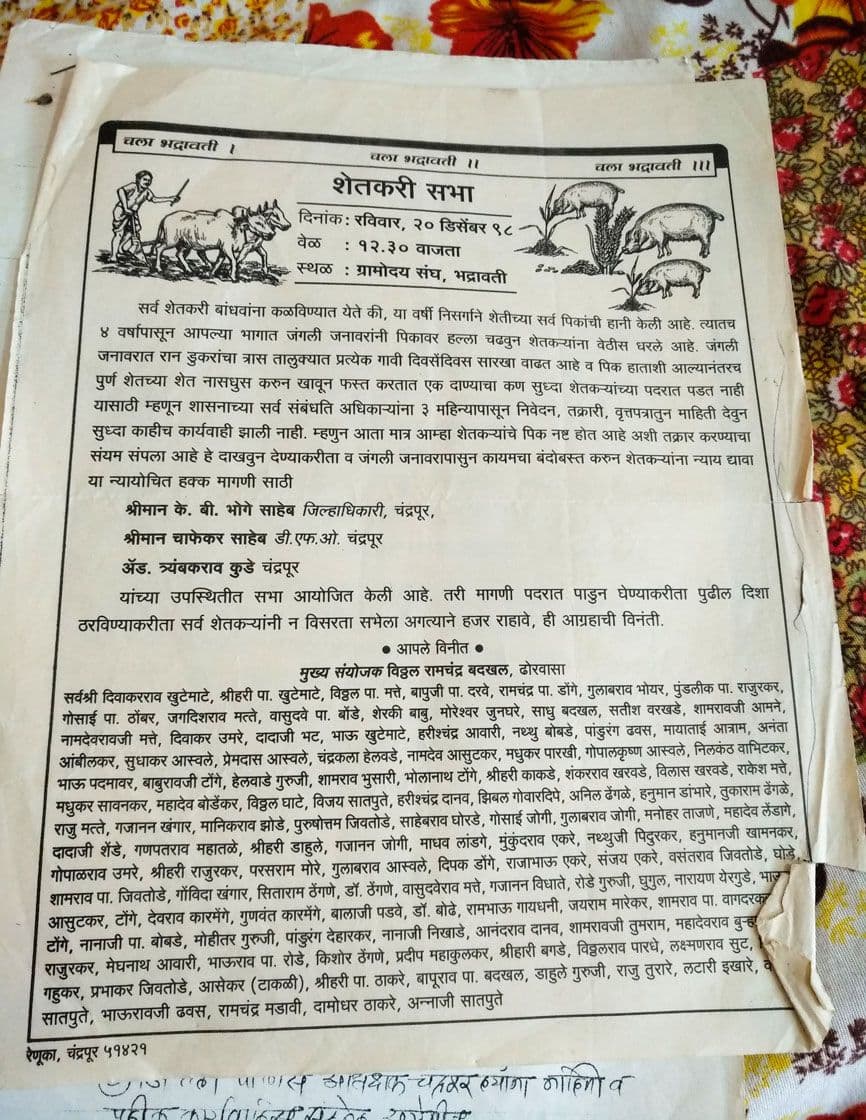 चला भद्रावती ।
चला भद्रावती ।।
चला भद्रावती ।।।
शेतकरी सभा
दिनांक : रविवार, २० डिसेंबर ९८
वेळ : १२.३० वाजता
स्थळ : ग्रामोदय संघ, भद्रावती
सर्व शेतकरी बांधवांना कळविण्यात येते की, या वर्षी निसर्गाने शेतीच्या सर्व पिकांची हानी केली आहे. त्यातच
४ वर्षापासून आपल्या भागात जंगली जनावरांनी पिकावर हल्ला चढवुन शेतकऱ्यांना वेठीस धरले आहे. जंगली
जनावरात रान डुकरांचा त्रास तालुक्यात प्रत्येक गावी दिवसेंदिवस सारखा वाढत आहे व पिक हाताशी आल्यानंतरच
पुर्ण शेतच्या शेत नासधुस करुन खावून फस्त करतात एक दाण्याचा कण सुध्दा शेतकऱ्यांच्या पदरात पडत नाही
यासाठी म्हणून शासनाच्या सर्व संबंधति अधिकाऱ्यांना ३ महिन्यापासून निवेदन, तक्रारी, वृत्तपत्रातुन माहिती देवुन
सुध्दा काहीच कार्यवाही झाली नाही. म्हणुन आता मात्र आम्हा शेतकऱ्यांचे पिक नष्ट होत आहे अशी तक्रार करण्याचा
संयम संपला आहे हे दाखवुन देण्याकरीता व जंगली जनावरापासुन कायमचा बंदोबस्त करुन शेतकऱ्यांना न्याय द्यावा
या न्यायोचित हक्क मागणी साठी
श्रीमान के. बी. भोगे साहेब जिल्हाधिकारी, चंद्रपूर,
श्रीमान चाफेकर साहेब डी.एफ.ओ. चंद्रपूर
ॲड. त्र्यंबकराव कुडे चंद्रपूर
यांच्या उपस्थितीत सभा आयोजित केली आहे. तरी मागणी पदरात पाडुन घेण्याकरीता पुढील दिशा
ठरविण्याकरीता सर्व शेतकऱ्यांनी न विसरता सभेला अगत्याने हजर राहावे, ही आग्रहाची विनंती.
● आपले विनीत ●
मुख्य संयोजक विठ्ठल रामचंद्र बदखल, ढोरवासा
सर्वश्री दिवाकरराव खुटेमाटे, श्रीहरी पा. खुटेमाटे, विठ्ठल पा. मत्ते, बापुजी पा. दरवे, रामचंद्र पा. डोंगे, गुलाबराव भोयर, पुंडलीक पा. राजुरकर,
गोसाई पा. ठोंबर, जगदिशराव मत्ते, वासुदवे पा. बोंडे, शेरकी बाबु, मोरेश्वर जुनघरे, साधु बदखल, सतीश वरखडे, शामरावजी आमने,
नामदेवरावजी मत्ते, दिवाकर उमरे, दादाजी भट, भाऊ खुटेमाटे, हरीश्चंद्र आवारी, नथ्थु बोबडे, पांडुरंग ढवस, मायाताई आत्राम, अनंता
आंबीलकर, सुधाकर आस्वले, प्रेमदास आस्वले, चंद्रकला हेलवडे, नामदेव आसुटकर, मधुकर पारखी, गोपालकृष्ण आस्वले, निलकंठ वाभिटकर,
भाऊ पदमावर, बाबुरावजी टोंगे, हेलवाडे गुरुजी, शामराव भुसारी, भोलानाथ टोंगे, श्रीहरी काकडे, शंकरराव खरवडे, विलास खरवडे, राकेश मत्ते,
मधुकर सावनकर, महादेव बोडेंकर, विठ्ठल घाटे, विजय सातपुते, हरीश्चंद्र दानव, झिबल गोवारदिपे, अनिल ढेंगळे, हनुमान डांभारे, तुकाराम ढेंगळे,
राजु मत्ते, गजानन खंगार, मानिकराव झोडे, पुरुषोत्तम जिवतोडे, साहेबराव घोरडे, गोसाई जोगी, गुलाबराव जोगी, मनोहर ताजणे, महादेव लेंडागे,
दादाजी शेंडे, गणपतराव महातळे, श्रीहरी डाहुले, गजानन जोगी, माधव लांडगे, मुंकुंदराव एकरे, नथ्थुजी पिदुरकर, हनुमानजी खामनकर,
गोपाळराव उमरे, श्रीहरी राजुरकर, परसराम मोरे, गुलाबराव आस्वले, दिपक डोंगे, राजाभाऊ एकरे, संजय एकरे, वसंतराव जिवतोडे, घोडे,
शामराव पा. जिवतोडे, गोंविदा खंगार, सिताराम ठेंगणे, डॉ. ठेंगणे, वासुदवेराव मत्ते, गजानन विधाते, रोडे गुरुजी, घुगुल, नारायण येरगुडे,
आसुटकर, टोंगे, देवराव कारमेंगे, गुणवंत कारमेंगे, बालाजी पडवे, डॉ. बोढे, रामभाऊ गायधनी, जयराम मारेकर, शामराव पा.
टोंगे, नानाजी पा. बोबडे, मोहीतर गुरुजी, पांडुरंग देहारकर, नानाजी निखाडे, आनंदराव दानव, शामरावजी तुमराम, महादेवराव
राजुरकर, मेघनाथ आवारी, भाऊराव पा. रोडे, किशोर ठेंगणे, प्रदीप महाकुलकर, श्रीहारी बगडे, विठ्ठलराव पारधे, लक्ष्मणराव सुट,
गहुकर, प्रभाकर जिवतोडे, आसेकर (टाकळी), श्रीहरी पा. ठाकरे, बापूराव पा. बदखल, डाहुले गुरुजी, राजु तुरारे, लटारी इखारे,
सातपुते, भाऊरावजी ढवस, रामचंद्र मडावी, दामोधर ठाकरे, अन्नाजी सातपुते
रेणूका, चंद्रपूर ५१४२१